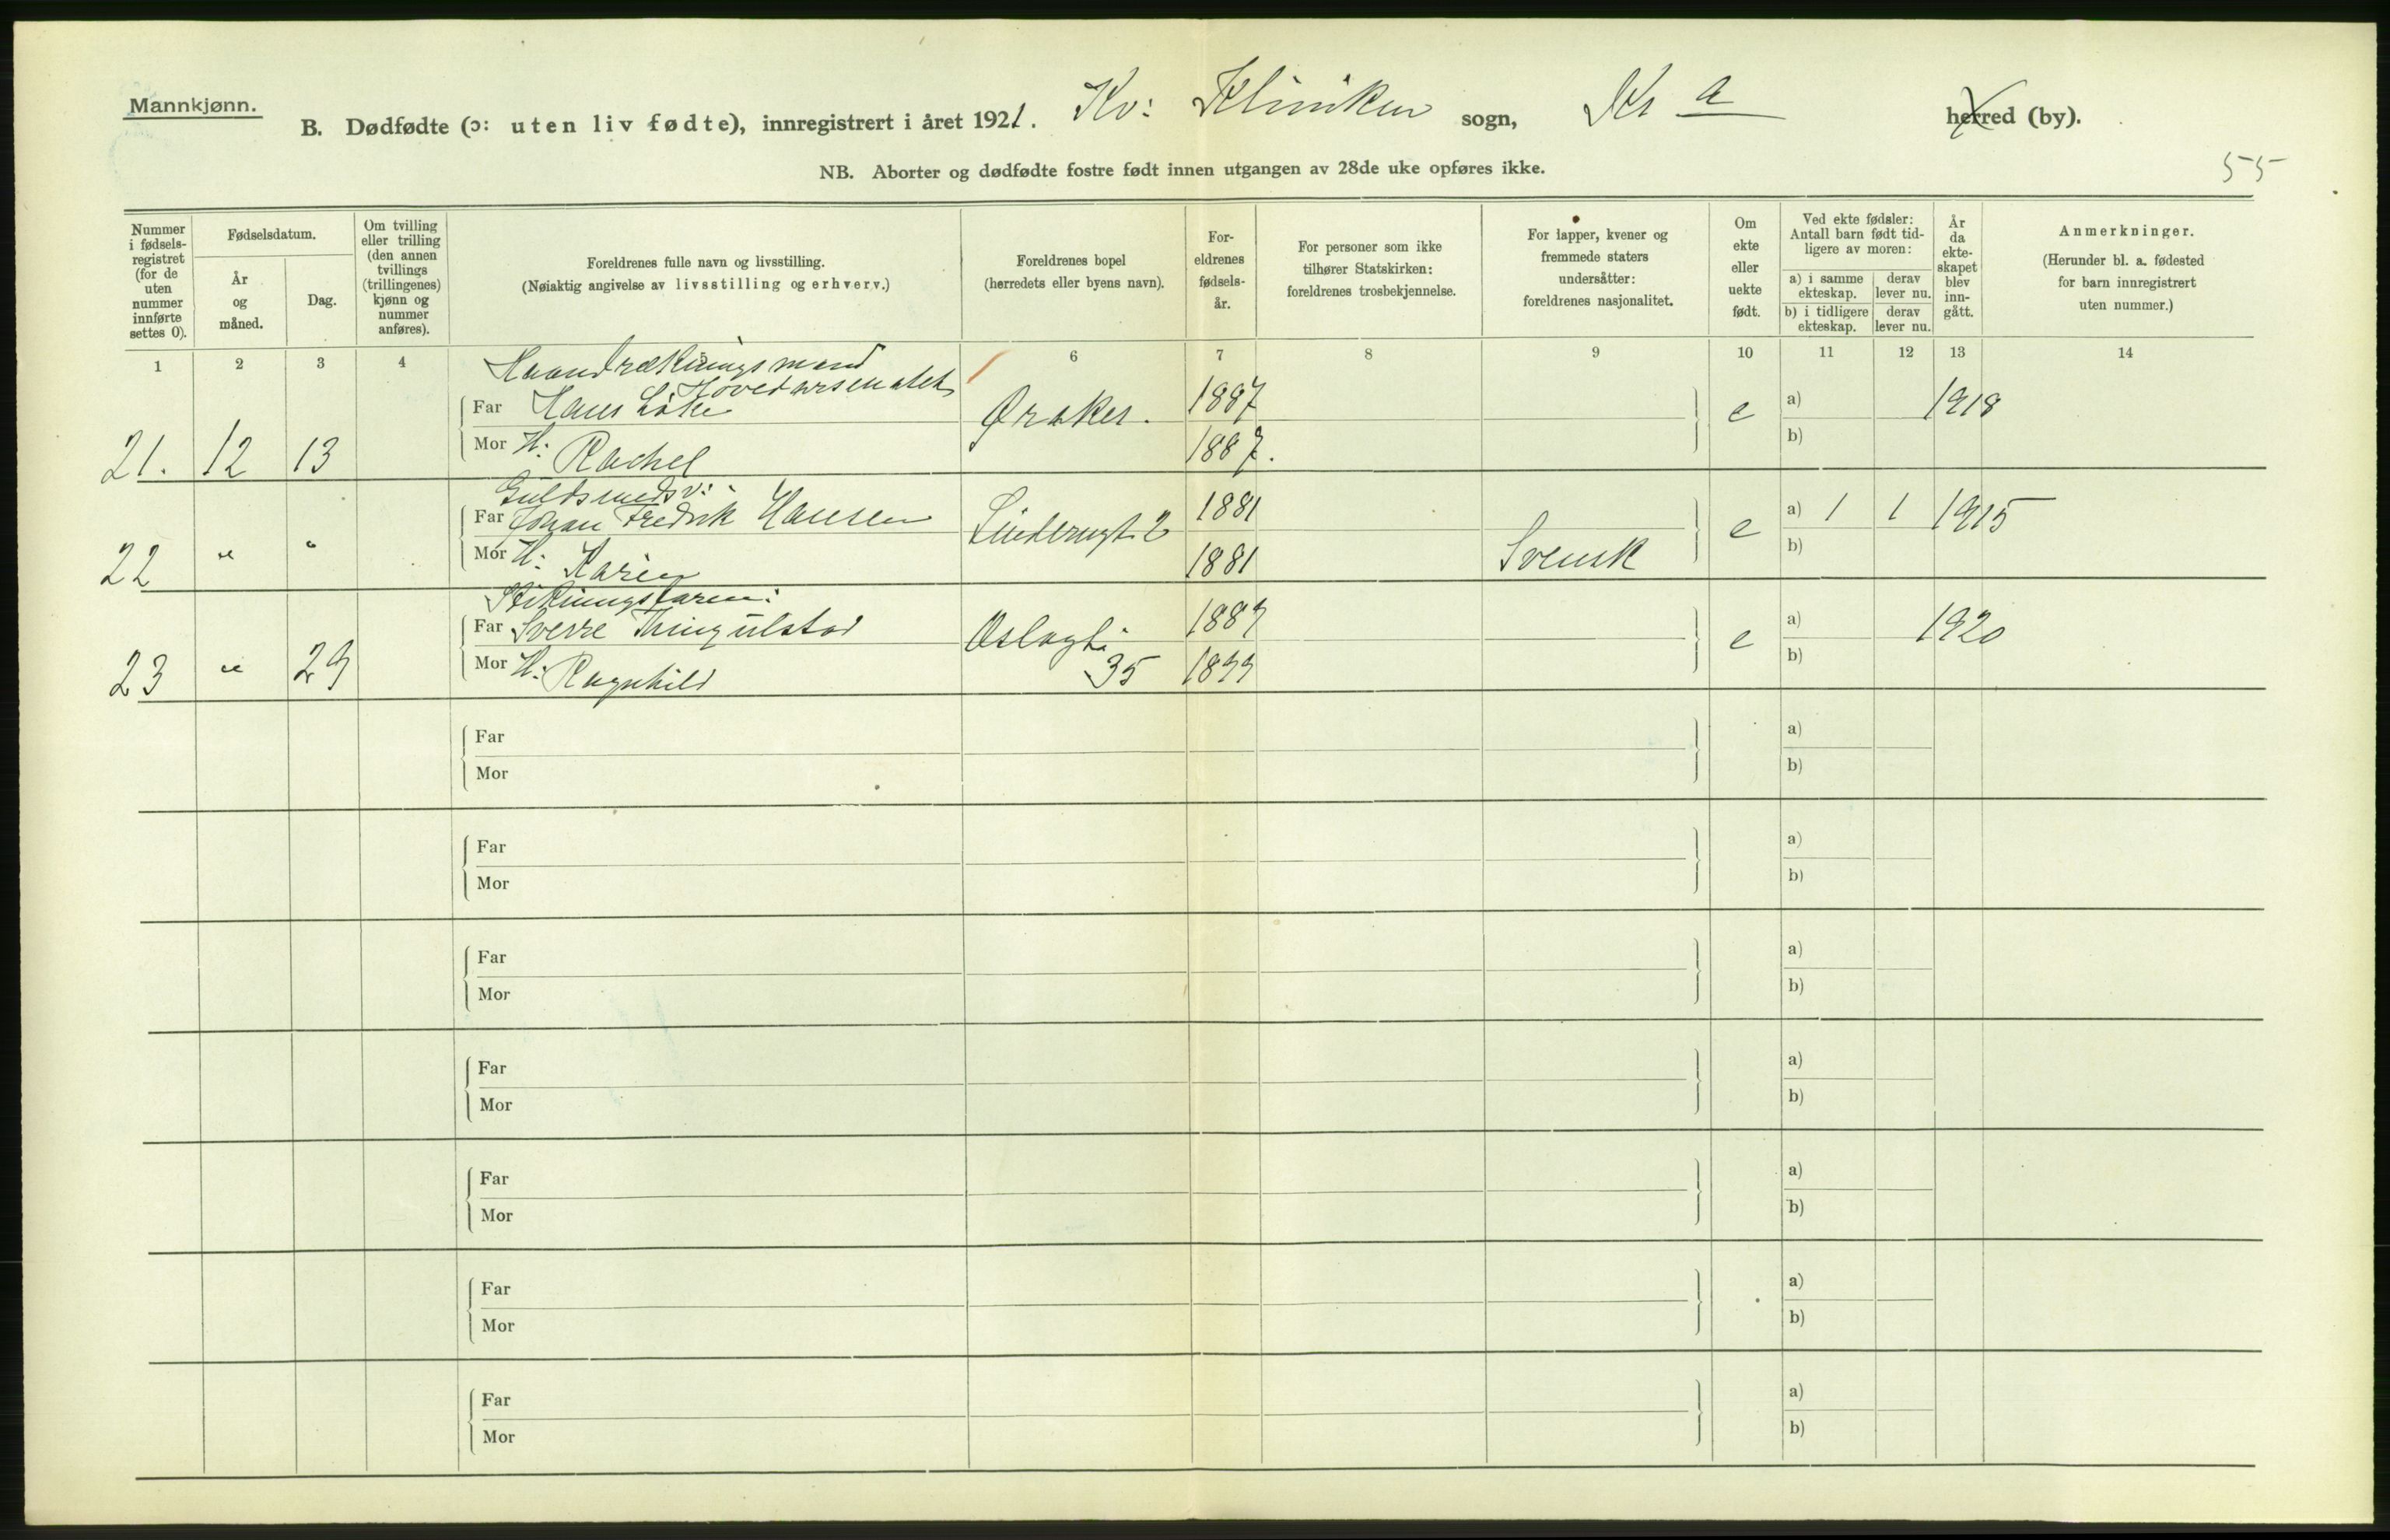 Mannkjønn.
B. Dødfødte (ɔ: uten liv fødte), innregistrert i året 1921. Kv: Kliniken sogn, Kr a herred (by).
NB. Aborter og dødfødte fostre født innen utgangen av 28de uke opføres ikke.
55
Nummer i fødsels-registret (for de uten nummer innførte settes 0).
Fødselsdatum.
År og måned.
Dag.
Om tvilling eller trilling (den annen tvillings (trillingenes) kjønn og nummer anføres).
Foreldrenes fulle navn og livsstilling.
(Nøiaktig angivelse av livsstilling og erhverv.)
Foreldrenes bopel
(herredets eller byens navn).
For-eldrenes fødsels-år.
For personer som ikke tilhører Statskirken: foreldrenes trosbekjennelse.
For lapper, kvener og fremmede staters undersåtter: foreldrenes nasjonalitet.
Om ekte eller uekte født.
Ved ekte fødsler: Antall barn født tid-ligere av moren:
a) i samme ekteskap. derav lever nu.
b) i tidligere ekteskap. derav lever nu.
År da ekte-skapet blev inn-gått.
Anmerkninger.
(Herunder bl. a. fødested for barn innregistrert uten nummer.)
1 2 3 4 6 7 8 9 10 11 12 13 14
Haandrækningsmand
Hovedarsenalet
Far Hans Løke Øraker. 1887 e a) 1918
21. 12 13 Mor H: Rachel 1887. b)
Guldsmedsv:
Far Johan Fredrik Hansen 1881 e a) 1 1 1915
22 " " Mor H: Karin 1881 Svensk b)
Far Sverre Thingulstad Oslogt. 1887 e a) 1920
23 " 29 Mor H: Ragnhild 35 1899 b)
Far a)
Mor b)
Far a)
Mor b)
Far a)
Mor b)
Far a)
Mor b)
Far a)
Mor b)
Far a)
Mor b)
Far a)
Mor b)